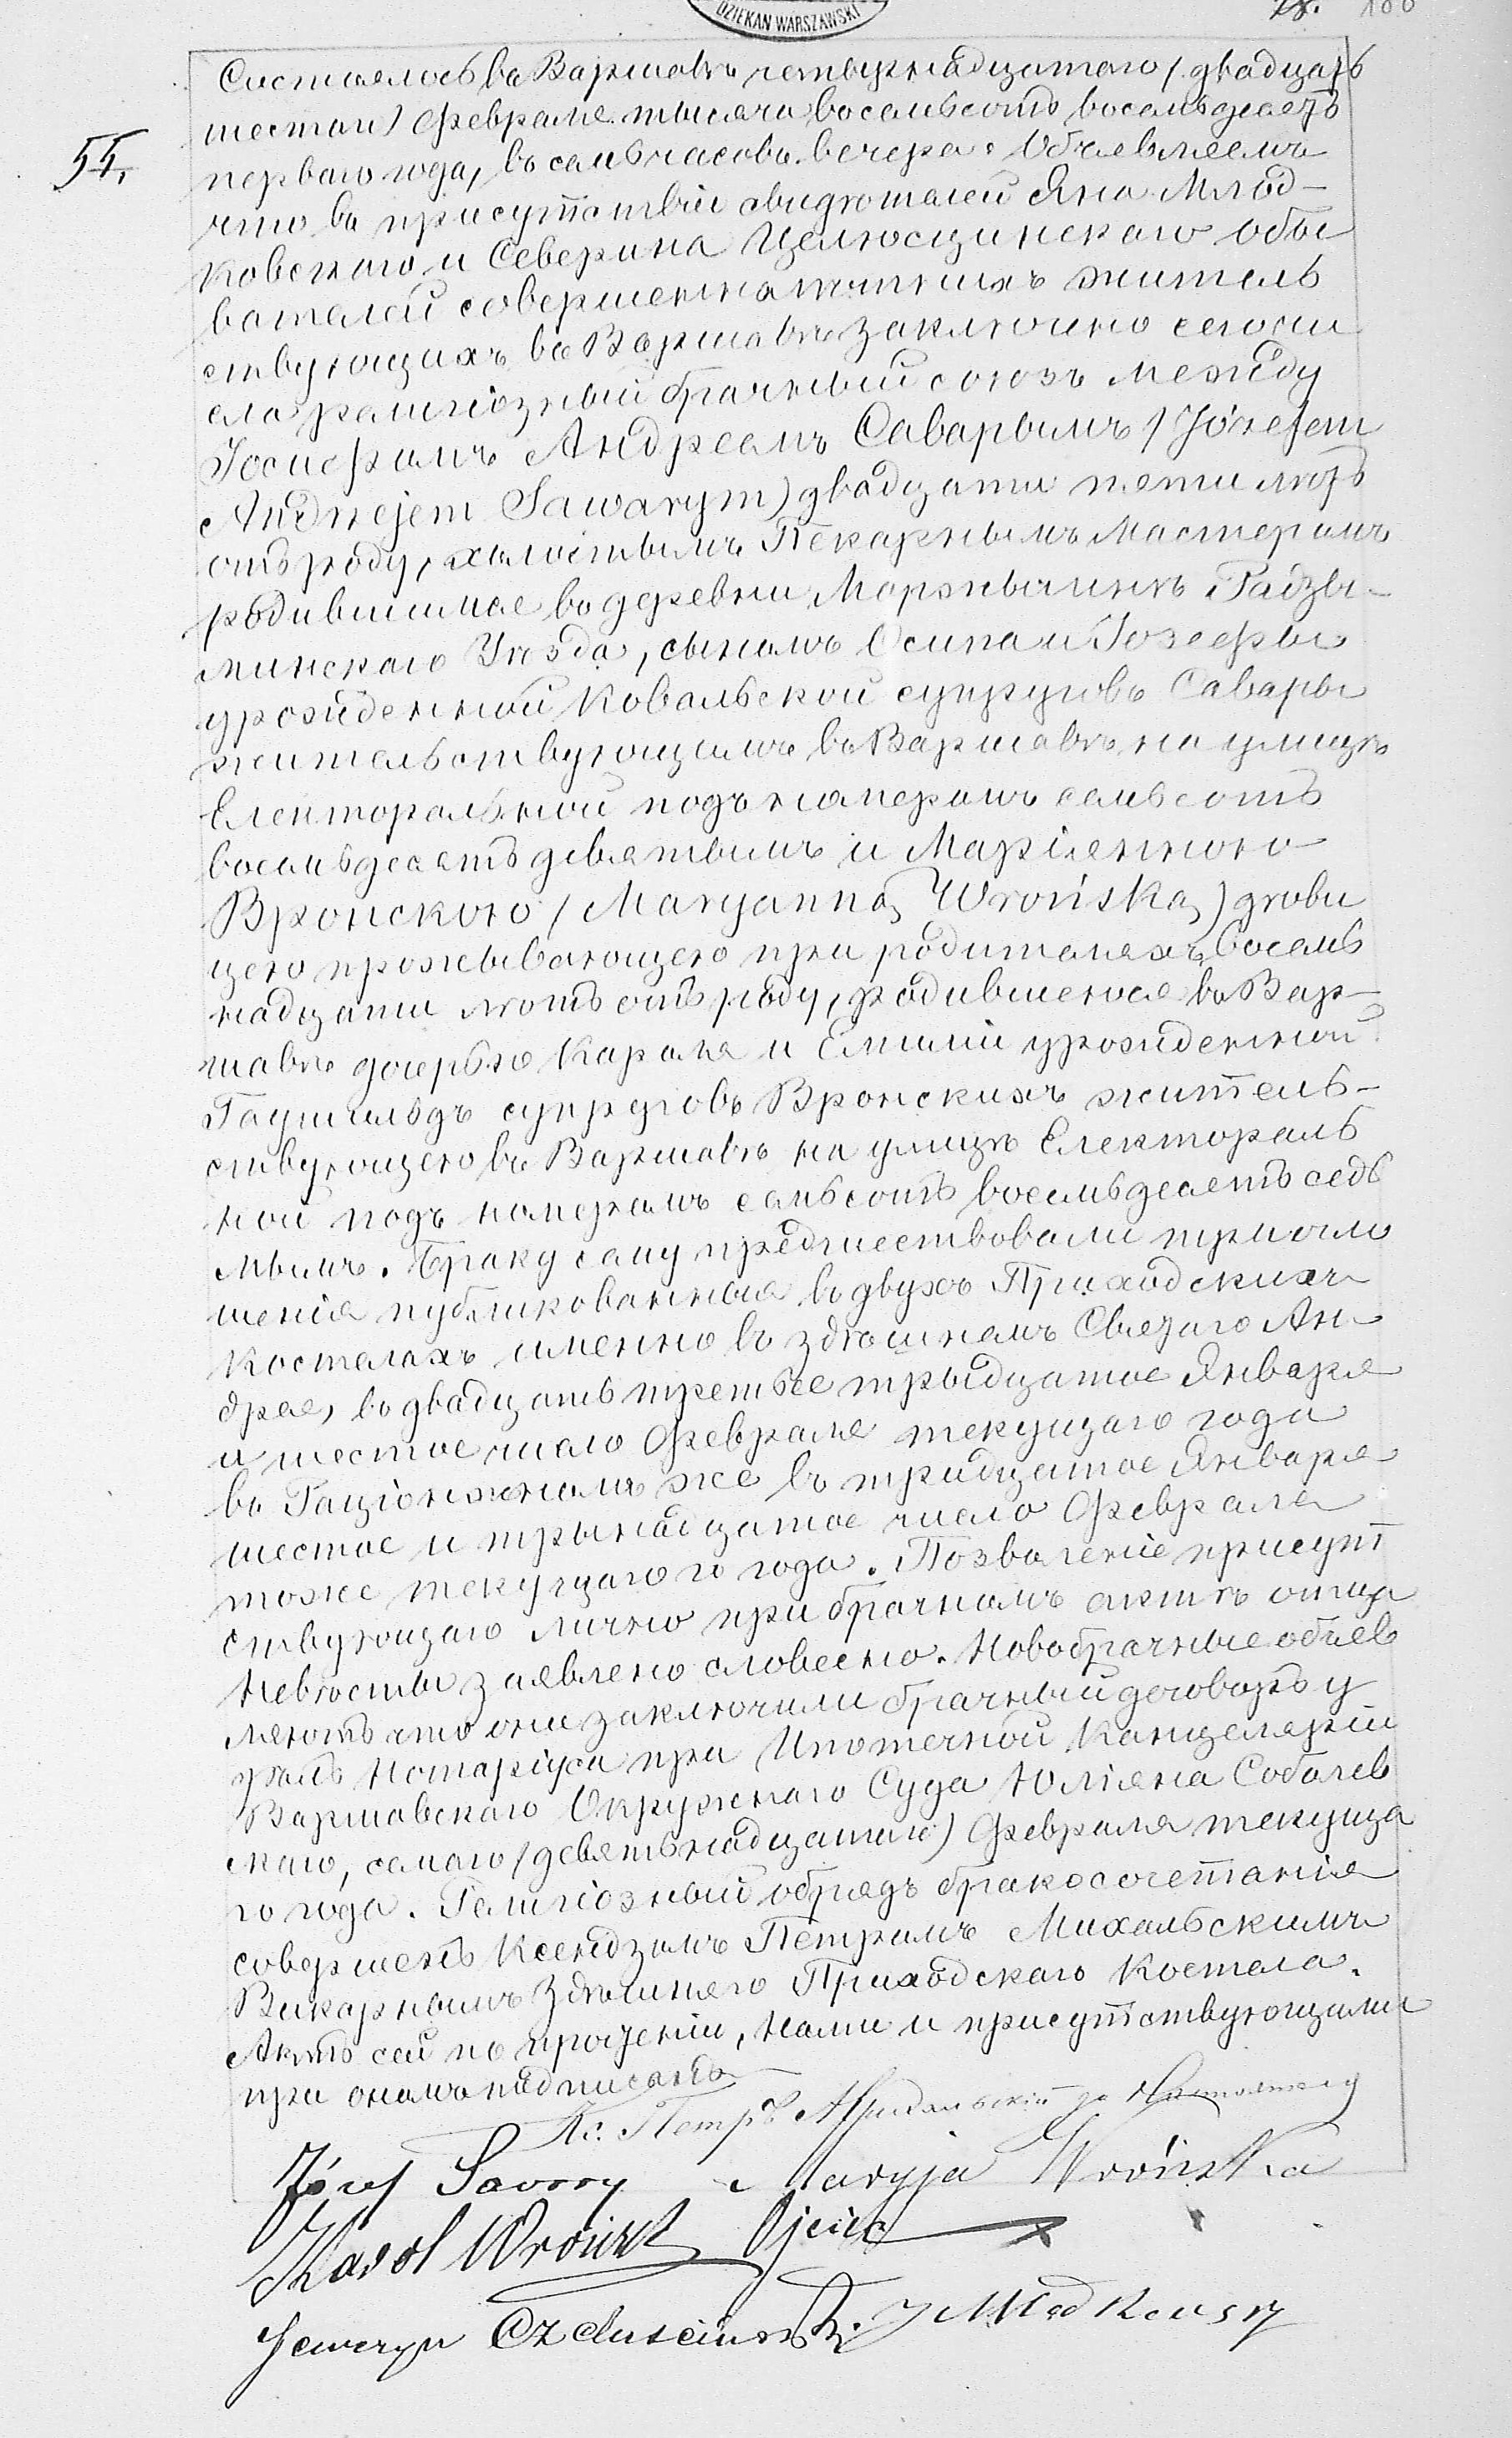 DZIEKAN WARSZAWSKI
78. 100
55.
Состоялось въ Варшавѣ четырнадцатаго / двадцать
шестаго) Февраля тысяча восемьсотъ восемьдесятъ
перваго года, въ семь часовъ вечера. Объявляемъ
что въ присутствіи свидѣтелей Яна Млод-
ковскаго и Северина Целюсцинскаго обы
вателей совершеннолѣтнихъ житель
ствующихъ въ Варшавѣ заключено сегочи
сла религіозный брачный союзъ между
Іосифомъ Андреемъ Саварымъ / Józefem
Andrzejem Sawarym) двадцати пяти лѣтъ
отъ роду, холостымъ Пекарнымъ Мастеромъ
родившимся въ деревни Радзы-
минскаго Уѣзда, сыномъ Осипа и Іозефы
урожденной Ковальской супруговъ Савары
жительствующимъ въ Варшавѣ на улицѣ
Електоральной подъ номеромъ семьсотъ
восемьдесятъ девятымъ и Маріянною
Вронскою / Maryanną Wrońską) дѣви
цею проживающею при родителяхъ, восемь
надцати лѣтъ отъ роду, родившеюся въ Вар-
шавѣ дочерью Кароля и Емиліи урожденной
супруговъ Вронскихъ житель-
ствующею въ Варшавѣ на улицѣ Електораль
ной подъ номеромъ семьсотъ восемьдесятъ седь
мымъ. Браку сему предшествовали три огла
шенія публикованныя въ двухъ Приходскихъ
Костелахъ именно въ здѣшнемъ Святаго Ан-
дрея, въ двадцать третье трыдцатое Января
и шестое число Февраля текущаго года
въ же въ тридцатое Января
шестое и трынадцатое число Февраля
тоже текущаго го года. Позволеніе присутт
ствующаго лично при брачномъ актѣ отца
Невѣсты заявлено словесно. Новобрачные объяв
ляютъ что они заключили брачный договоръ у
Нотаріуса при Ипотечной Канцеляріи
Варшавскаго Окружнаго Суда Юліяна Соболев
скаго, семаго / девятьнадцатаго) Февраля текуща
го года. Религіозный обрядъ бракосочетанія
совершенъ Ксендзомъ Петромъ Михальскимъ
Викарнымъ Здѣшняго Приходскаго Костела.
Актъ сей по прочтеніи, Нами и присутствующими
при ономъ подписанъ
Кс. Петръ Михальскій за Настоятеля
Józef Savary Maryja Wrońska
Karol Wroński Ojciec
Seweryn J Młodkowsky